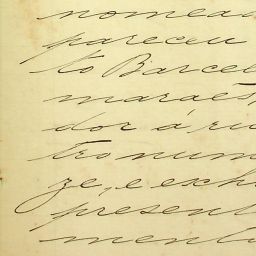 nomea
pareceu
to Barcel
maraes
dor á ru
tro num
ze, e exhi
present
mento